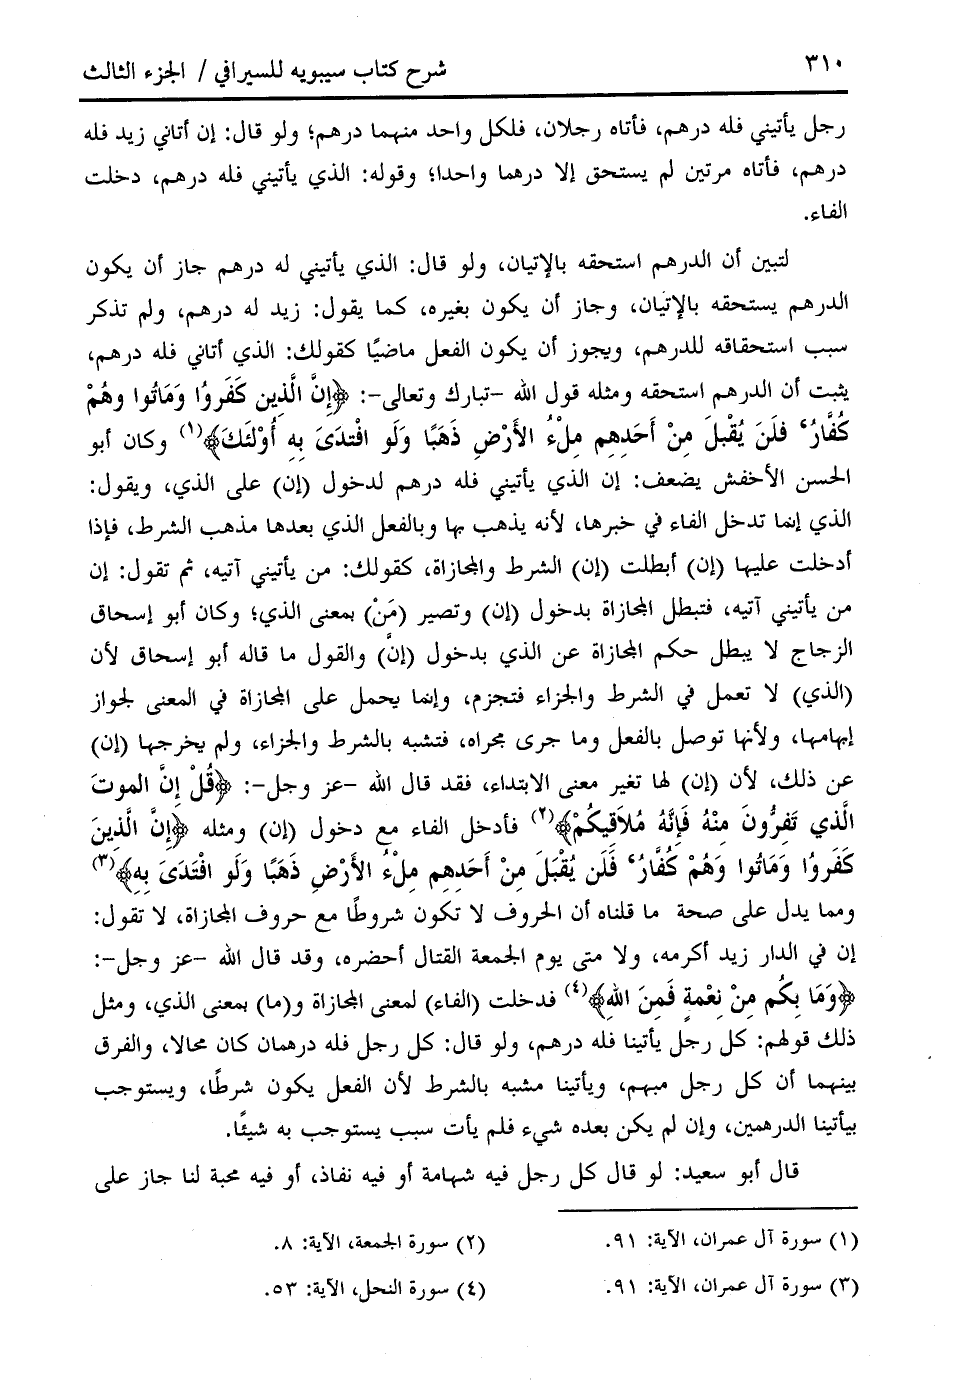 ٣١٠
شرح كتاب سيبويه للسيرافي / الجزء الثالث
رجل يأتيني فله درهم، فأتاه رجلان، فلكل واحد منهما درهم؛ ولو قال: إن أتاني زيد فله
درهم، فأتاه مرتين لم يستحق إلا درهما واحدا؛ وقوله: الذي يأتيني فله درهم، دخلت
الفاء.
لتبين أن الدرهم استحقه بالإتيان، ولو قال: الذي يأتيني له درهم جاز أن يكون
الدرهم يستحقه بالإتيان، وجاز أن يكون بغيره، كما يقول: زيد له درهم، ولم تذكر
سبب استحقاقه للدرهم، ويجوز أن يكون الفعل ماضيًا كقولك: الذي أتاني فله درهم،
يثبت أن الدرهم استحقه ومثله قول الله -تبارك وتعالى-: ﴿إِنَّ الَّذِين كَفَرُوا وَمَاتُوا وهُمْ
كُفَّارٌ فَلَنْ يُقْبلَ مِنْ أَحَدِهِم مِلْءُ الأَرْضِ ذَهَبًا وَلَو افْتدَىَ بِهِ أُوْلئَكَ﴾(١) وكان أبو
الحسن الأخفش يضعف: إن الذي يأتيني فله درهم لدخول (إن) على الذي، ويقول:
الذي إنما تدخل الفاء في خبرها، لأنه يذهب بها وبالفعل الذي بعدها مذهب الشرط، فإذا
أدخلت عليها (إن) أبطلت (إن) الشرط والمجازاة، كقولك: من يأتيني آتيه، ثم تقول: إن
من يأتيني آتيه، فتبطل المجازاة بدخول (إن) وتصير (مَنْ) بمعنى الذي؛ وكان أبو إسحاق
الزجاج لا يبطل حكم المجازاة عن الذي بدخول (إنَّ) والقول ما قاله أبو إسحاق لأن
(الذي) لا تعمل في الشرط والجزاء فتجزم، وإنما يحمل على المجازاة في المعنى لجواز
إبهامها، ولأنها توصل بالفعل وما جرى مجراه، فتشبه بالشرط والجزاء، ولم يخرجها (إن)
عن ذلك، لأن (إن) لها تغير معنى الابتداء، فقد قال الله -عز وجل-: ﴿قُلْ إِنَّ الموتَ
الَّذي تَفِرُّونَ مِنْهُ فَإِنَّهُ مُلاَقِيكُمْ﴾(٢) فأدخل الفاء مع دخول (إن) ومثله ﴿إِنَّ الَّذِينَ
كَفَرُوا وَمَاتُوا وَهُمْ كُفَّارٌ فَلَن يُقْبَلَ مِنْ أَحَدِهِم مِلْءُ الأَرْضِ ذَهَبًا وَلَو افْتَدَى بِهِ﴾(٣)
ومما يدل على صحة ما قلناه أن الحروف لا تكون شروطًا مع حروف المجازاة، لا تقول:
إن في الدار زيد أكرمه، ولا متى يوم الجمعة القتال أحضره، وقد قال الله -عز وجل-:
﴿وَمَا بِكُم مِنْ نِعْمةٍ فَمِنَ اللهِ﴾(٤) فدخلت (الفاء) لمعنى المجازاة و(ما) بمعنى الذي، ومثل
ذلك قولهم: كل رجل يأتينا فله درهم، ولو قال: كل رجل فله درهمان كان محالا، والفرق
بينهما أن كل رجل مبهم، ويأتينا مشبه بالشرط لأن الفعل يكون شرطًا، ويستوجب
بيأتينا الدرهمين، وإن لم يكن بعده شيء فلم يأت سبب يستوجب به شيئًا.
قال أبو سعيد: لو قال كل رجل فيه شهامة أو فيه نفاذ، أو فيه محبة لنا جاز على
(١) سورة آل عمران، الآية: ٩١.
(٢) سورة الجمعة، الآية: ٨.
(٣) سورة آل عمران، الآية: ٩١.
(٤) سورة النحل، الآية: ٥٣.